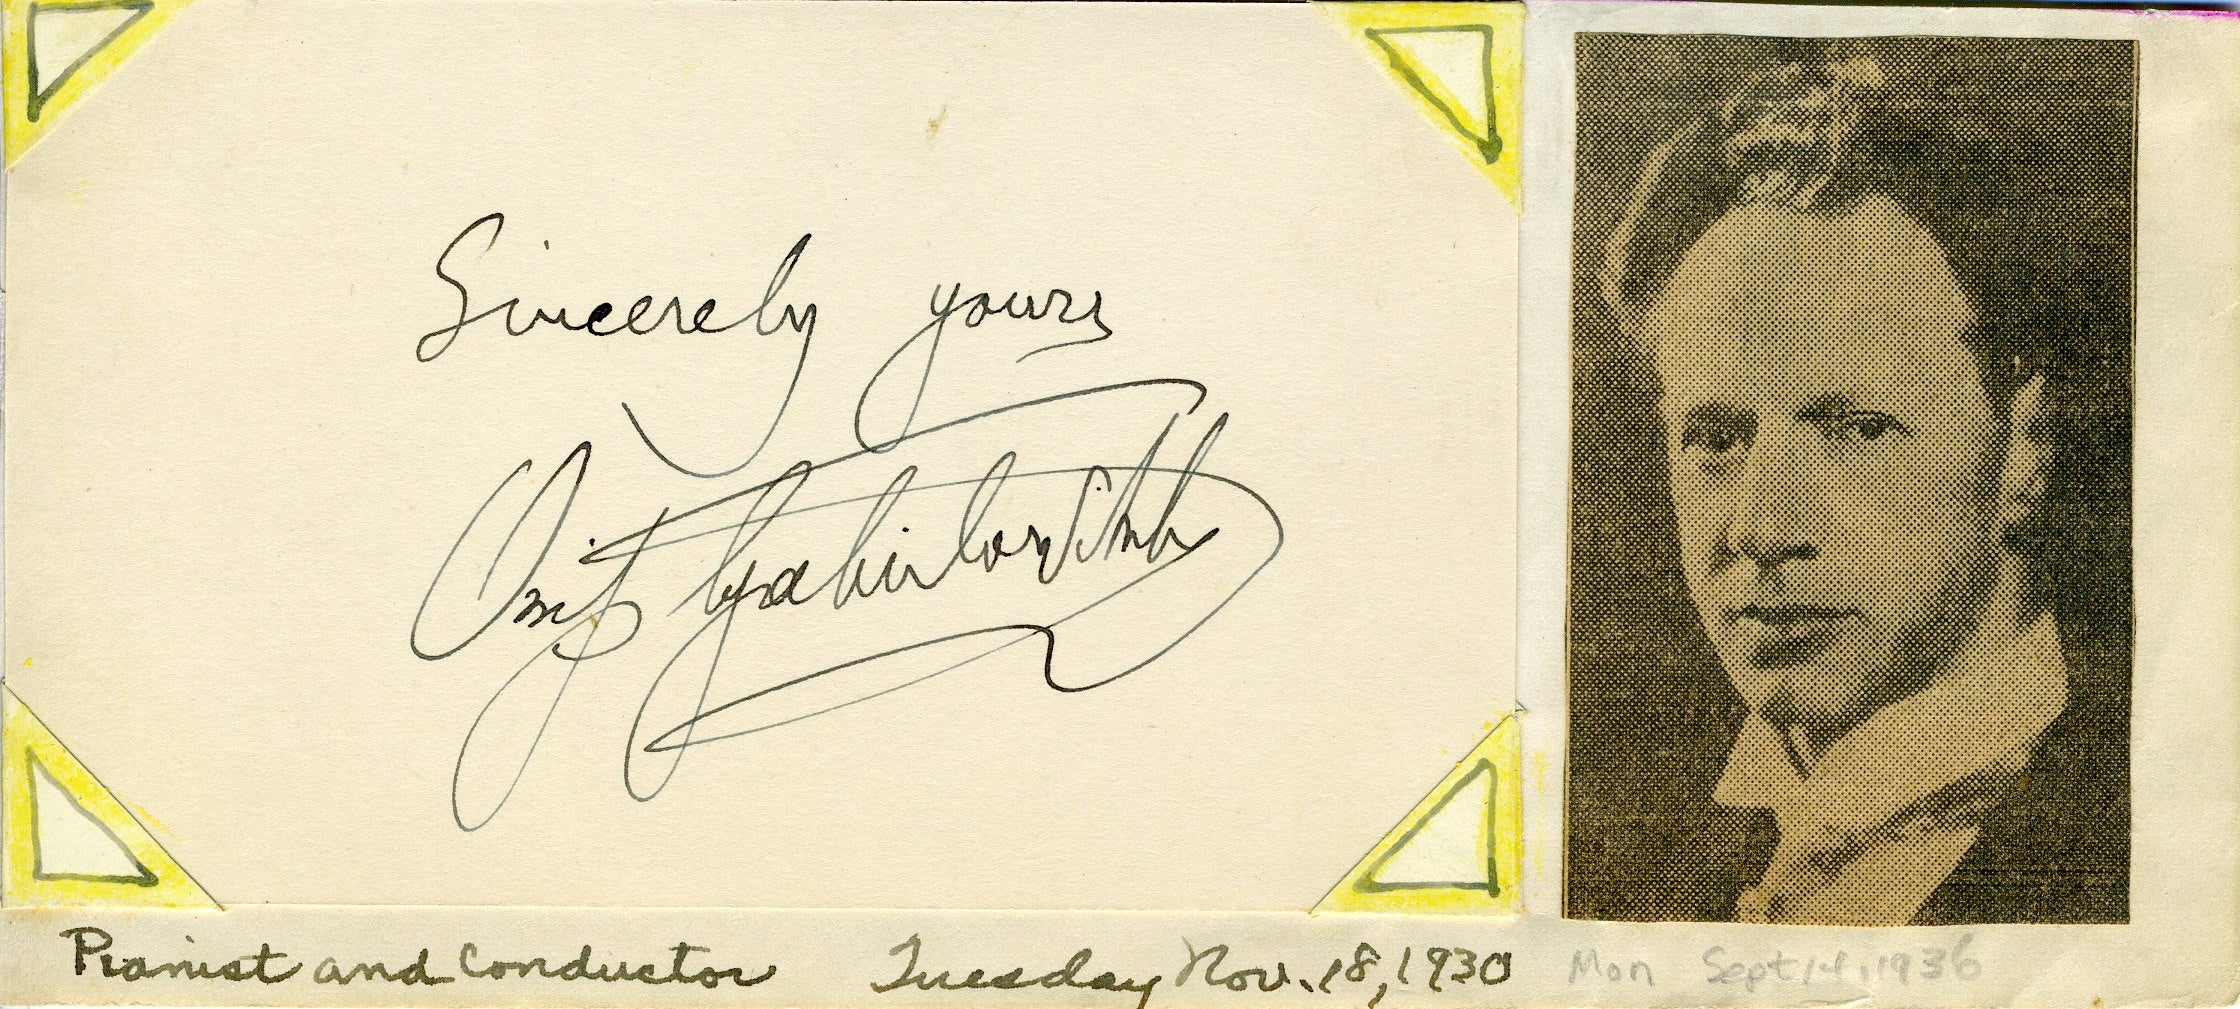 Sincerely yours
Ossip Gabrilowitsch
Pianist and Conductor Tuesday Nov. 18, 1930 Mon Sept 14, 1936